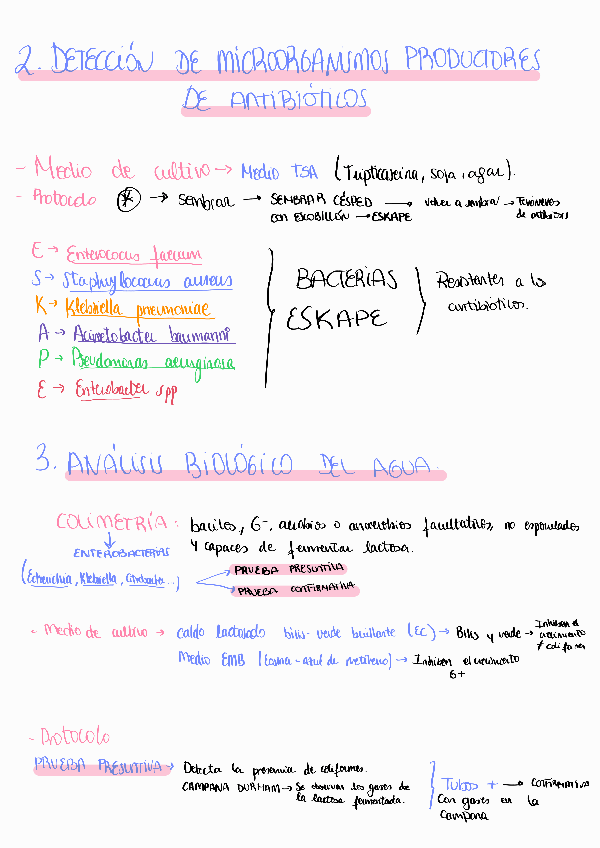 2. DETECCIÓN DE MICROORGANISMOS PRODUCTORES
DE ANTIBIÓTICOS
- Medio de cultivo → Medio TSA (Tripticaseina, soja, agar).
- Protocolo * → Sembrar → SEMBRAR CÉSPED → volver a sembrar →
con ESCOBILLÓN → ESKAPE de antibióticos
E → Enterococus faecium
S → Staphylococus aureus
K → Klebsiella pneumoniae
A → Acinetobacter baumanni
P → Pseudomonas aeruginosa
E → Enterobacter spp
BACTERIAS
ESKAPE
Resistentes a los
antibióticos.
3. ANÁLISIS BIOLÓGICO DEL AGUA.
COLIMETRÍA: bacilos, G-, aerobios o anaerobios facultativos, no esporulados
y capaces de fermentar lactosa.
↓
ENTEROBACTERIAS
(Echerichia, Klebsiella, Citrobacter...) → PRUEBA PRESUNTIVA
→ PRUEBA CONFIRMATIVA
- Medio de cultivo → caldo lactosado bilis-verde brillante (EC) → Bilis y verde → Inhiben el
crecimiento
≠ coliformes
Medio EMB (Eosina-azul de metileno) → Inhiben el crecimiento
G+
- Protocolo
PRUEBA PRESUNTIVA → Detecta la presencia de coliformes.
CAMPANA DURHAM → Se observan los gases de
la lactosa fermentada.
Tubos + → CONFIRMATIVA
Con gases en la
campana